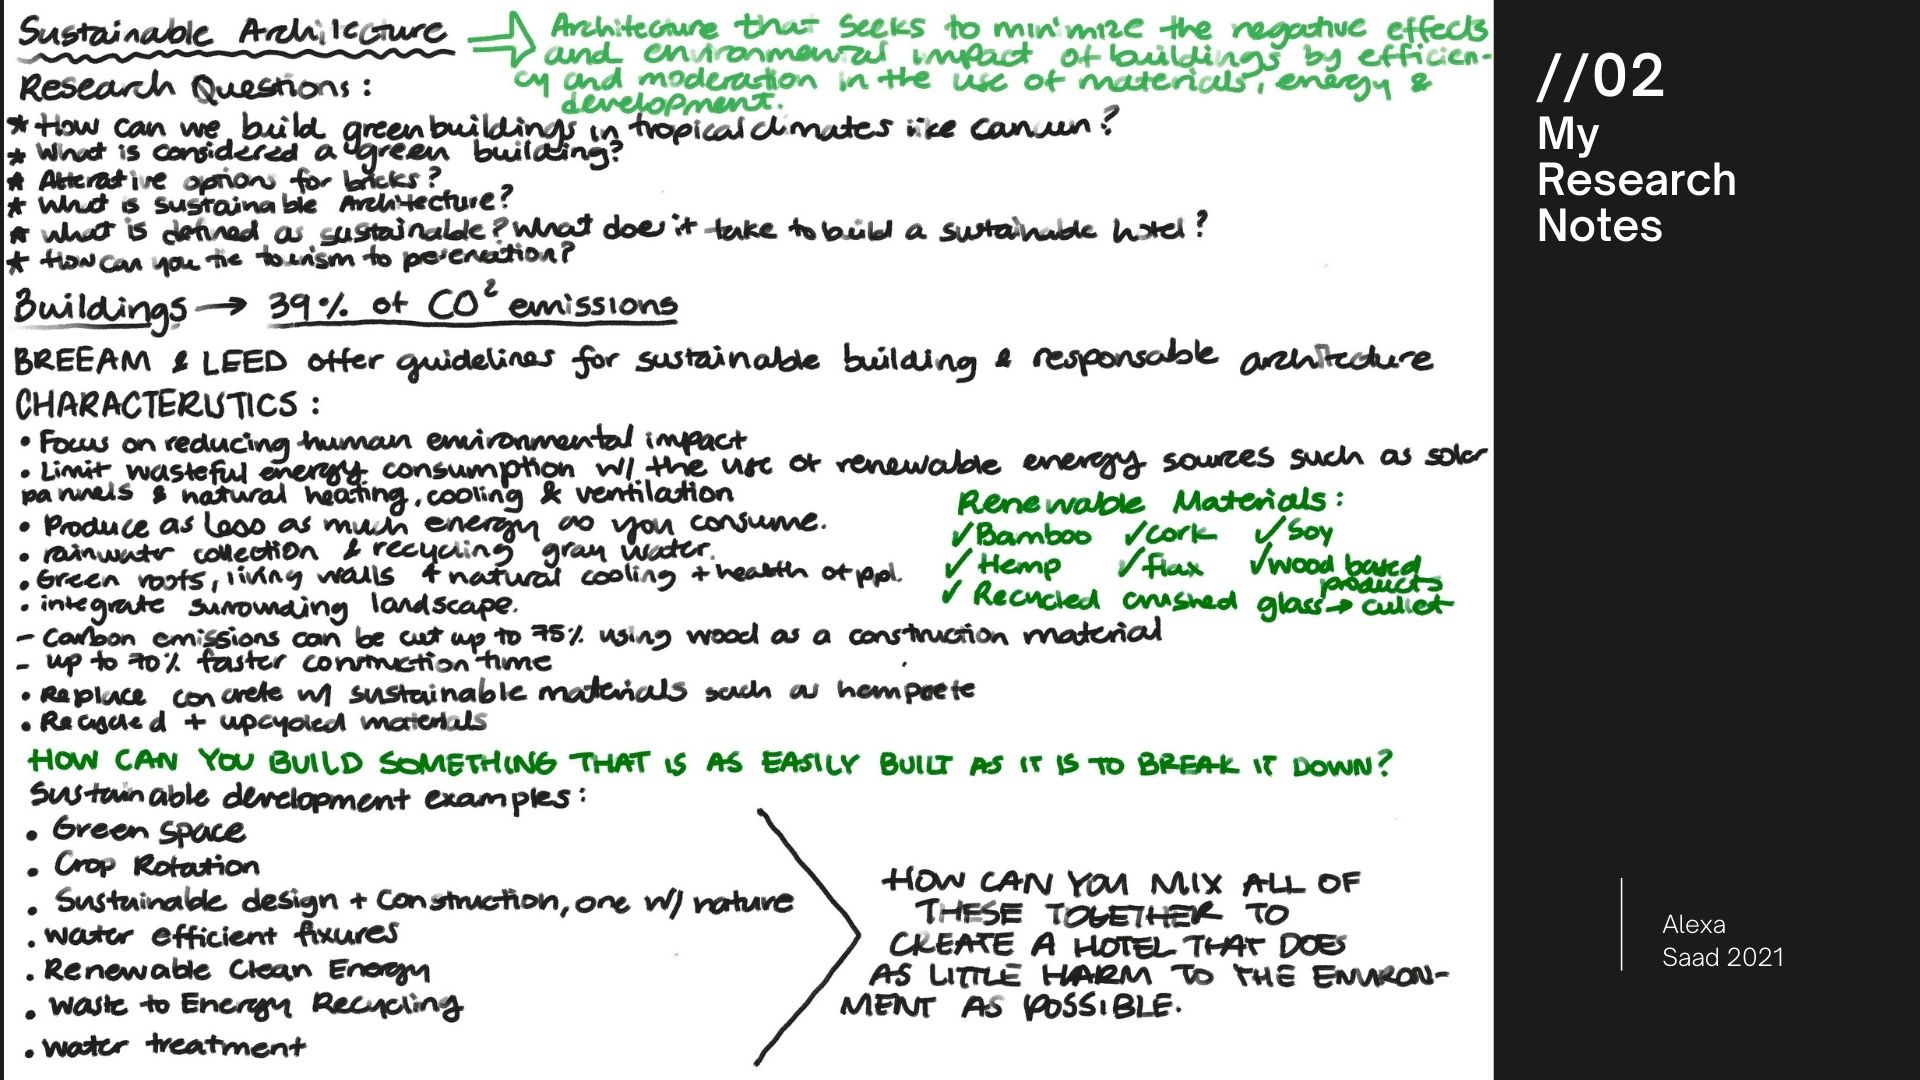 Sustainable Architecture
Architecture that seeks to minimize the negative effects
and environmental impact of buildings by efficien-
cy and moderation in the use of materials, energy &
development.
Research Questions:
* How can we build green buildings in tropical climates like cancun?
* What is considered a green building?
* Alterative options for bricks?
* What is sustainable Architecture?
* What is defined as sustainable? What does it take to build a sustainable hotel?
* How can you tie tourism to
Buildings → 39% of CO² emissions
BREEAM & LEED offer guidelines for sustainable building & responsable architecture
CHARACTERISTICS:
• Focus on reducing human environmental impact
• Limit wasteful energy consumption w/ the use of renewable energy sources such as solar
pannels & natural heating, cooling & ventilation
• Produce as less as much energy as you consume.
• rainwater collection & recycling gray water.
• Green roofs, living walls + natural cooling + health of ppl.
• integrate surrounding landscape.
Renewable Materials:
✓ Bamboo ✓ Cork ✓ Soy
✓ Hemp ✓ flax ✓ wood based
products
✓ Recycled crushed glass → cullet
- Carbon emissions can be cut up to 75% using wood as a construction material
- up to 70% faster construction time
• Replace concrete w/ sustainable materials such as hempcrete
• Recycled + upcycled materials
HOW CAN YOU BUILD SOMETHING THAT IS AS EASILY BUILT AS IT IS TO BREAK IT DOWN?
Sustainable development examples:
• Green Space
• Crop Rotation
• Sustainable design + Construction, one w/ nature
• Water efficient fixures
• Renewable Clean Energy
• Waste to Energy Recycling
• Water treatment
HOW CAN YOU MIX ALL OF
THESE TOGETHER TO
CREATE A HOTEL THAT DOES
AS LITTLE HARM TO THE ENVIRON-
MENT AS POSSIBLE.
//02
My
Research
Notes
Alexa
Saad 2021